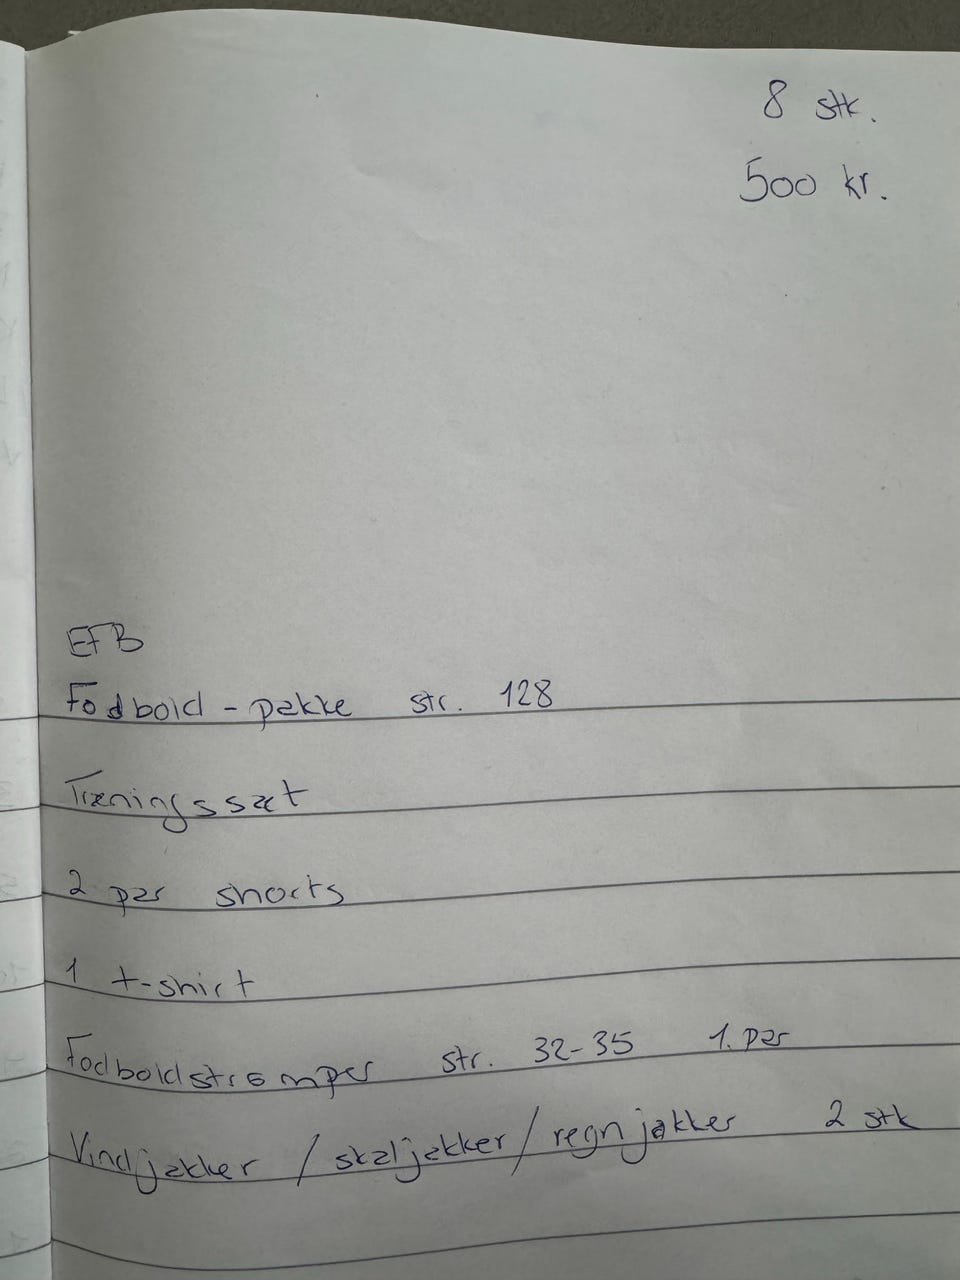 8 stk.
500 kr.
EFB
Fodbold - pakke str. 128
Træningssæt
2 par shorts
1 t-shirt
Fodboldstrømper str. 32-35 1. par
Vindjakker / skaljakker / regnjakker 2 stk